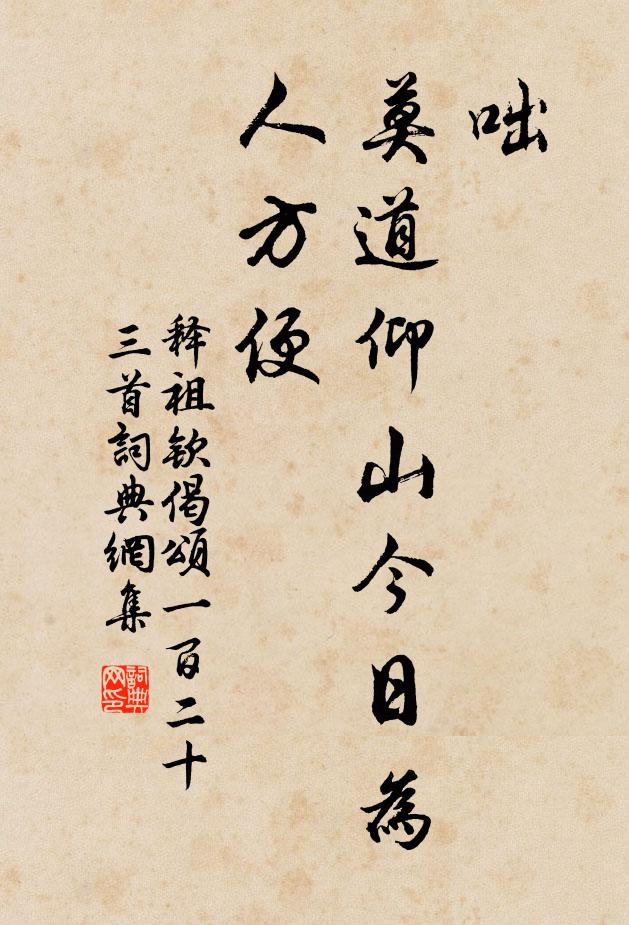 咄
莫道仰山今日為
人方便
释祖钦偈頌一百二十
三首詞典網集
詞典
网印